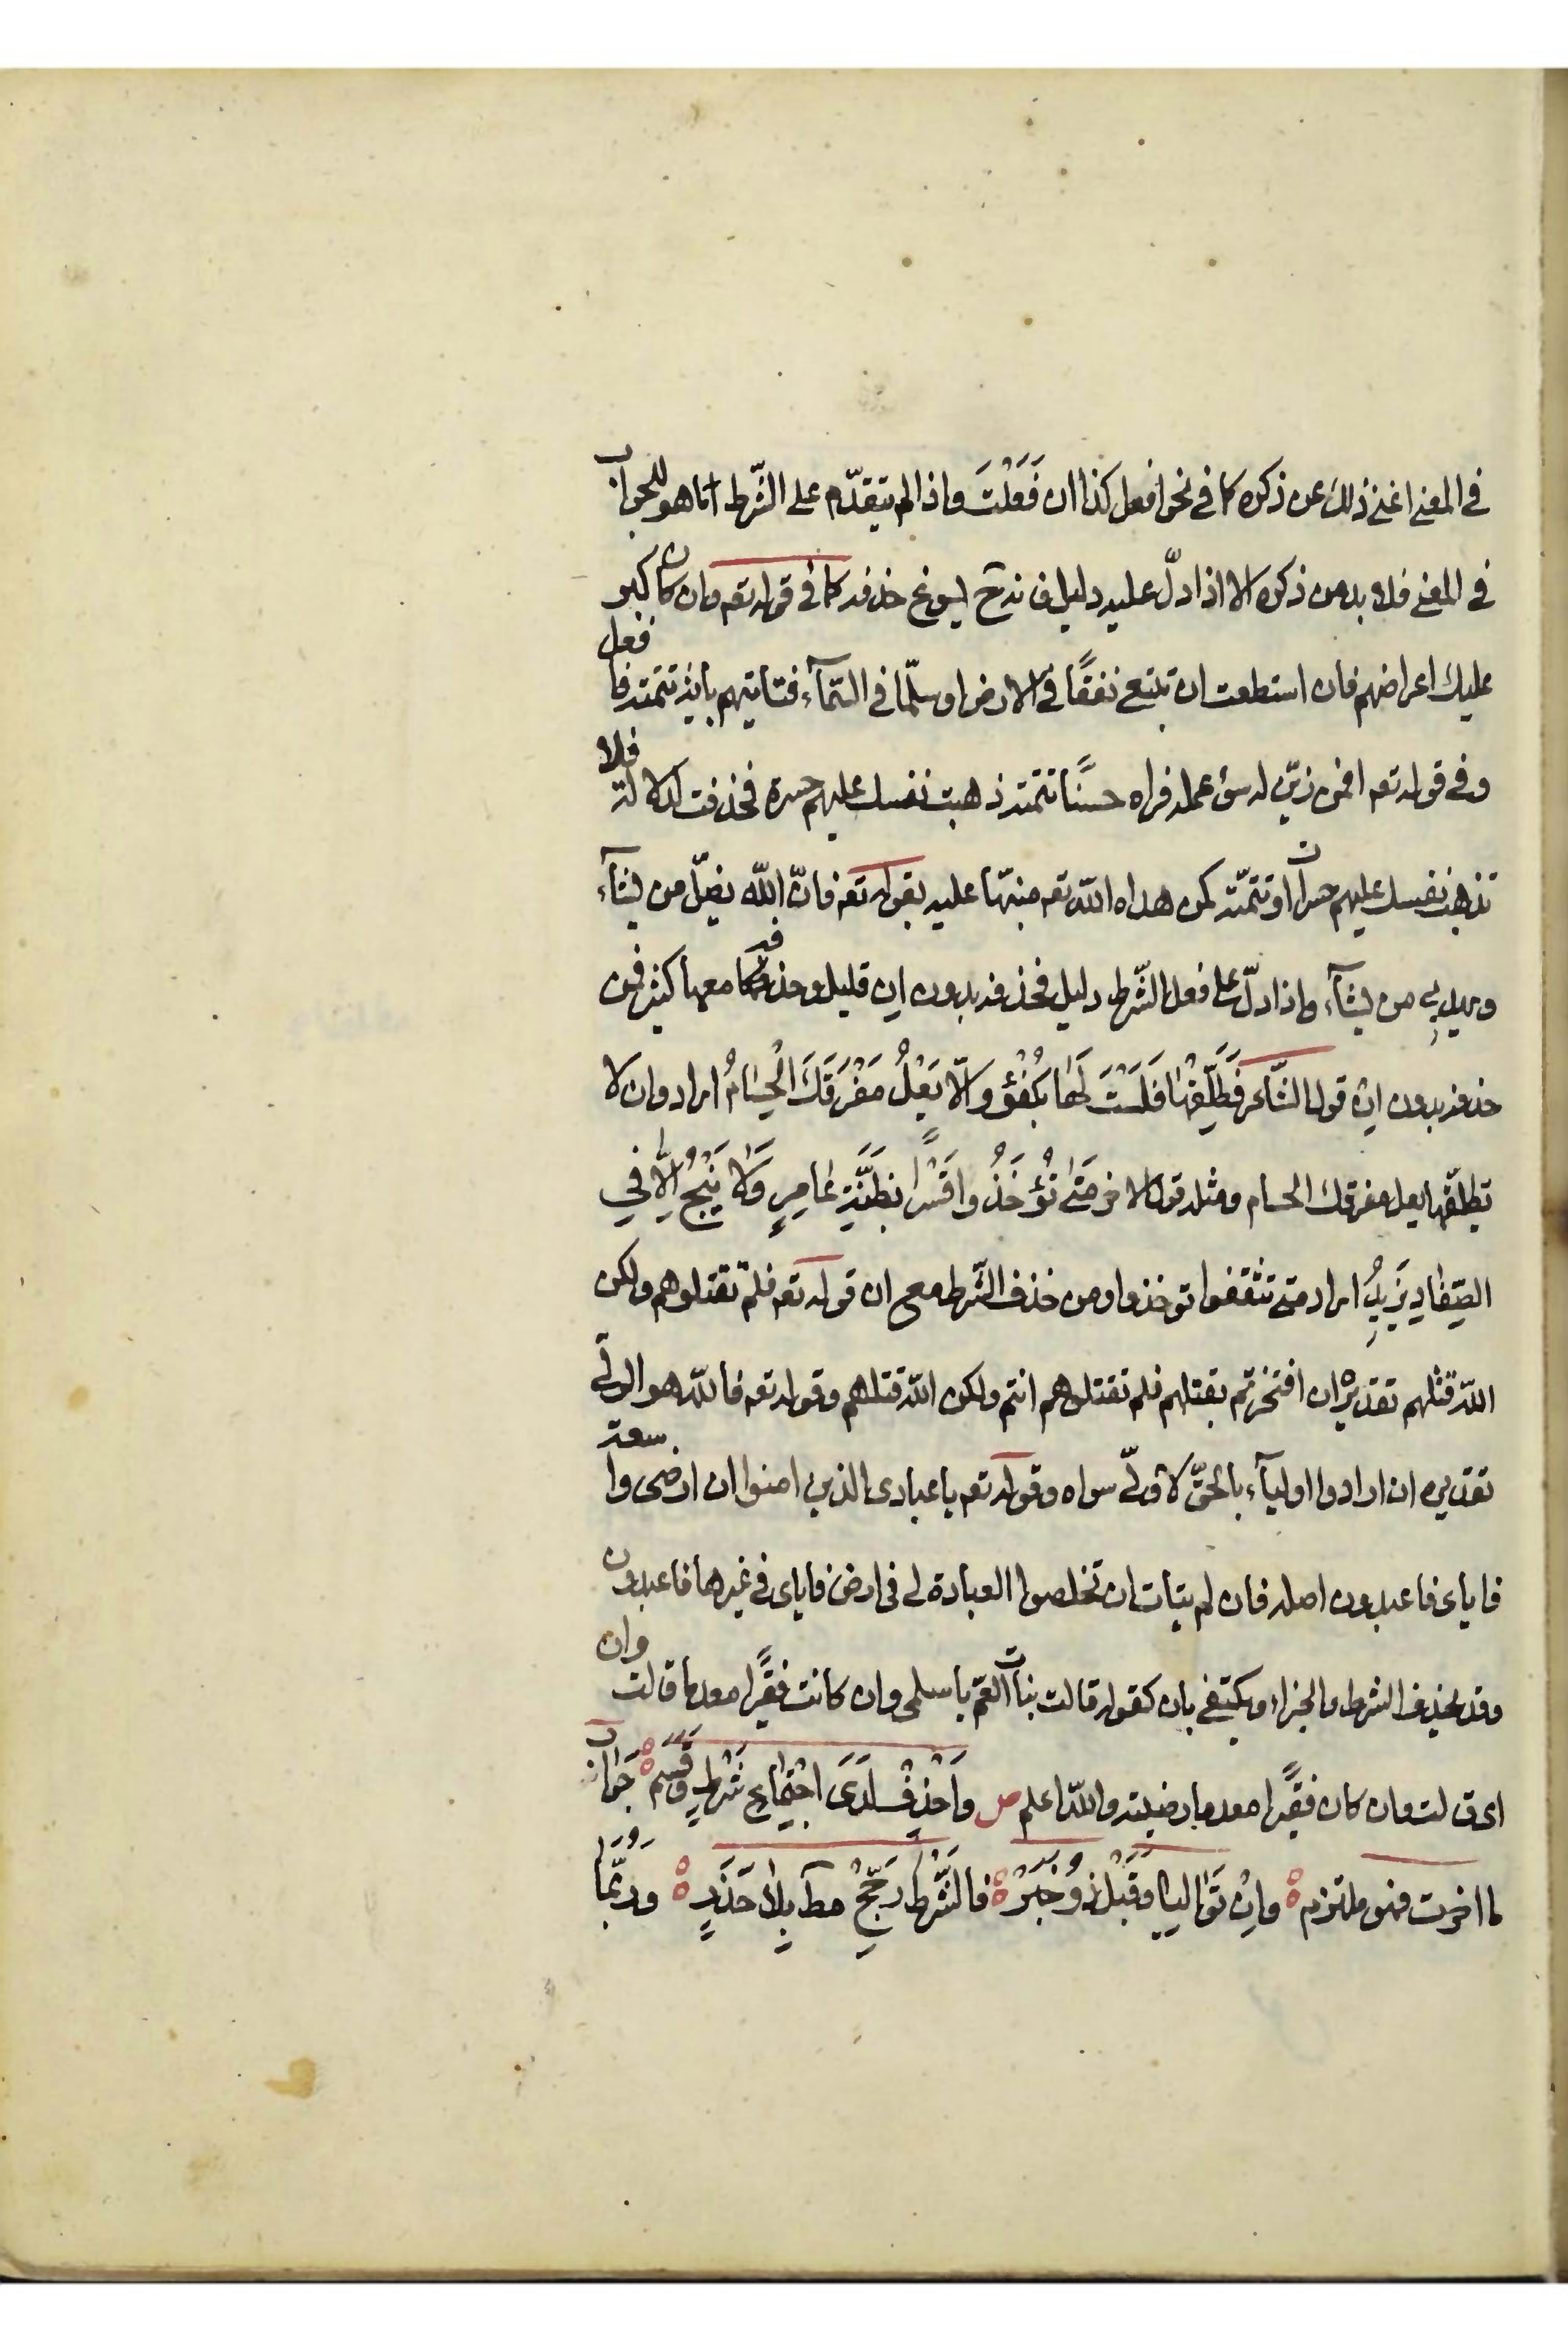 في المعنى اغنى ذلك عن ذكره كما في نحو افعل كذا ان فَعَلْتَ واذا لم يتقدّم على الشّرط اما هو للجواب
في المعنى فلا بد من ذكره الا اذا دلّ عليه دليل فانه ح يسوغ حذفه كما في قوله تعم وان كان كبر
عليك اعراضهم فان استطعت ان تبتغي نفقًا في الارض او سلّما في السّمآء فتاتيهم باية تتمته فافعل
وفي قوله تعم افمن زيّن له سوء عمله فراه حسنًا تتمته ذهبت نفسك عليهم حسرة فحذفت لدلالة فلا
تذهب نفسك عليهم حسرات او تتمّته كمن هداه اللّه تعم منبّها عليه بقوله تعم فانّ اللّه يضلّ من يشآء
ويهدي من يشآء واذا دلّ على فعل الشّرط دليل فحذفه بدون ان قليل وحذفه معها كثير فمن
حذفه بدون ان قول الشّاعر فَطَلِّقْهَا فَلَسْتَ لَهَا بِكُفْؤٍ وَالّا يَعْلُ مَفْرَقَكَ الْحُسَامُ اراد وان لا
تطلّقها يعل مفرقك الحسام ومثله قول الاخر مَتَى تُؤْخَذُوا قَسْرًا بِظَنَّةِ عَامِرٍ وَلَا يَنْجُ الّا فِي
الصِّفَادِ يَزِيدُ اراد متى تثقفوا توخذوا ومن حذف الشّرط مع ان قوله تعم فلم تقتلوهم ولكن
اللّه قتلهم تقديره ان افتخرتم بقتلهم فلم تقتلوهم انتم ولكن اللّه قتلهم وقوله تعم فاللّه هو الولي
تقديره ان ارادوا اوليآء بالحقّ لا وليّ سواه وقوله تعم يا عبادي الذين امنوا ان ارضى واسعة
فاياى فاعبدون اصله فان لم يتات ان تخلصوا العبادة لي في ارض فاياى في غيرها فاعبدون
وقد يحذف الشرط والجزاء ويكتفى بان كقوله قالت بنات العمّ يا سلمى وان كانت فقيًرا معدما قالت وان
اى قالت وان كان فقيًرا معدما رضيته واللّه اعلم ص وَاحْذِفْ لَدَى اجْتِمَاعِ شَرْطٍ وَقَسَمْ جَوَابَ
ما اخرت فهو ملتزم وَاِنْ تَوَالَيَا وَقَبْلُ ذُو خَبَرْ فَالشَّرْطَ رَجِّحْ مطلقا بِلَا حَذَرِ وَرُبَّمَا